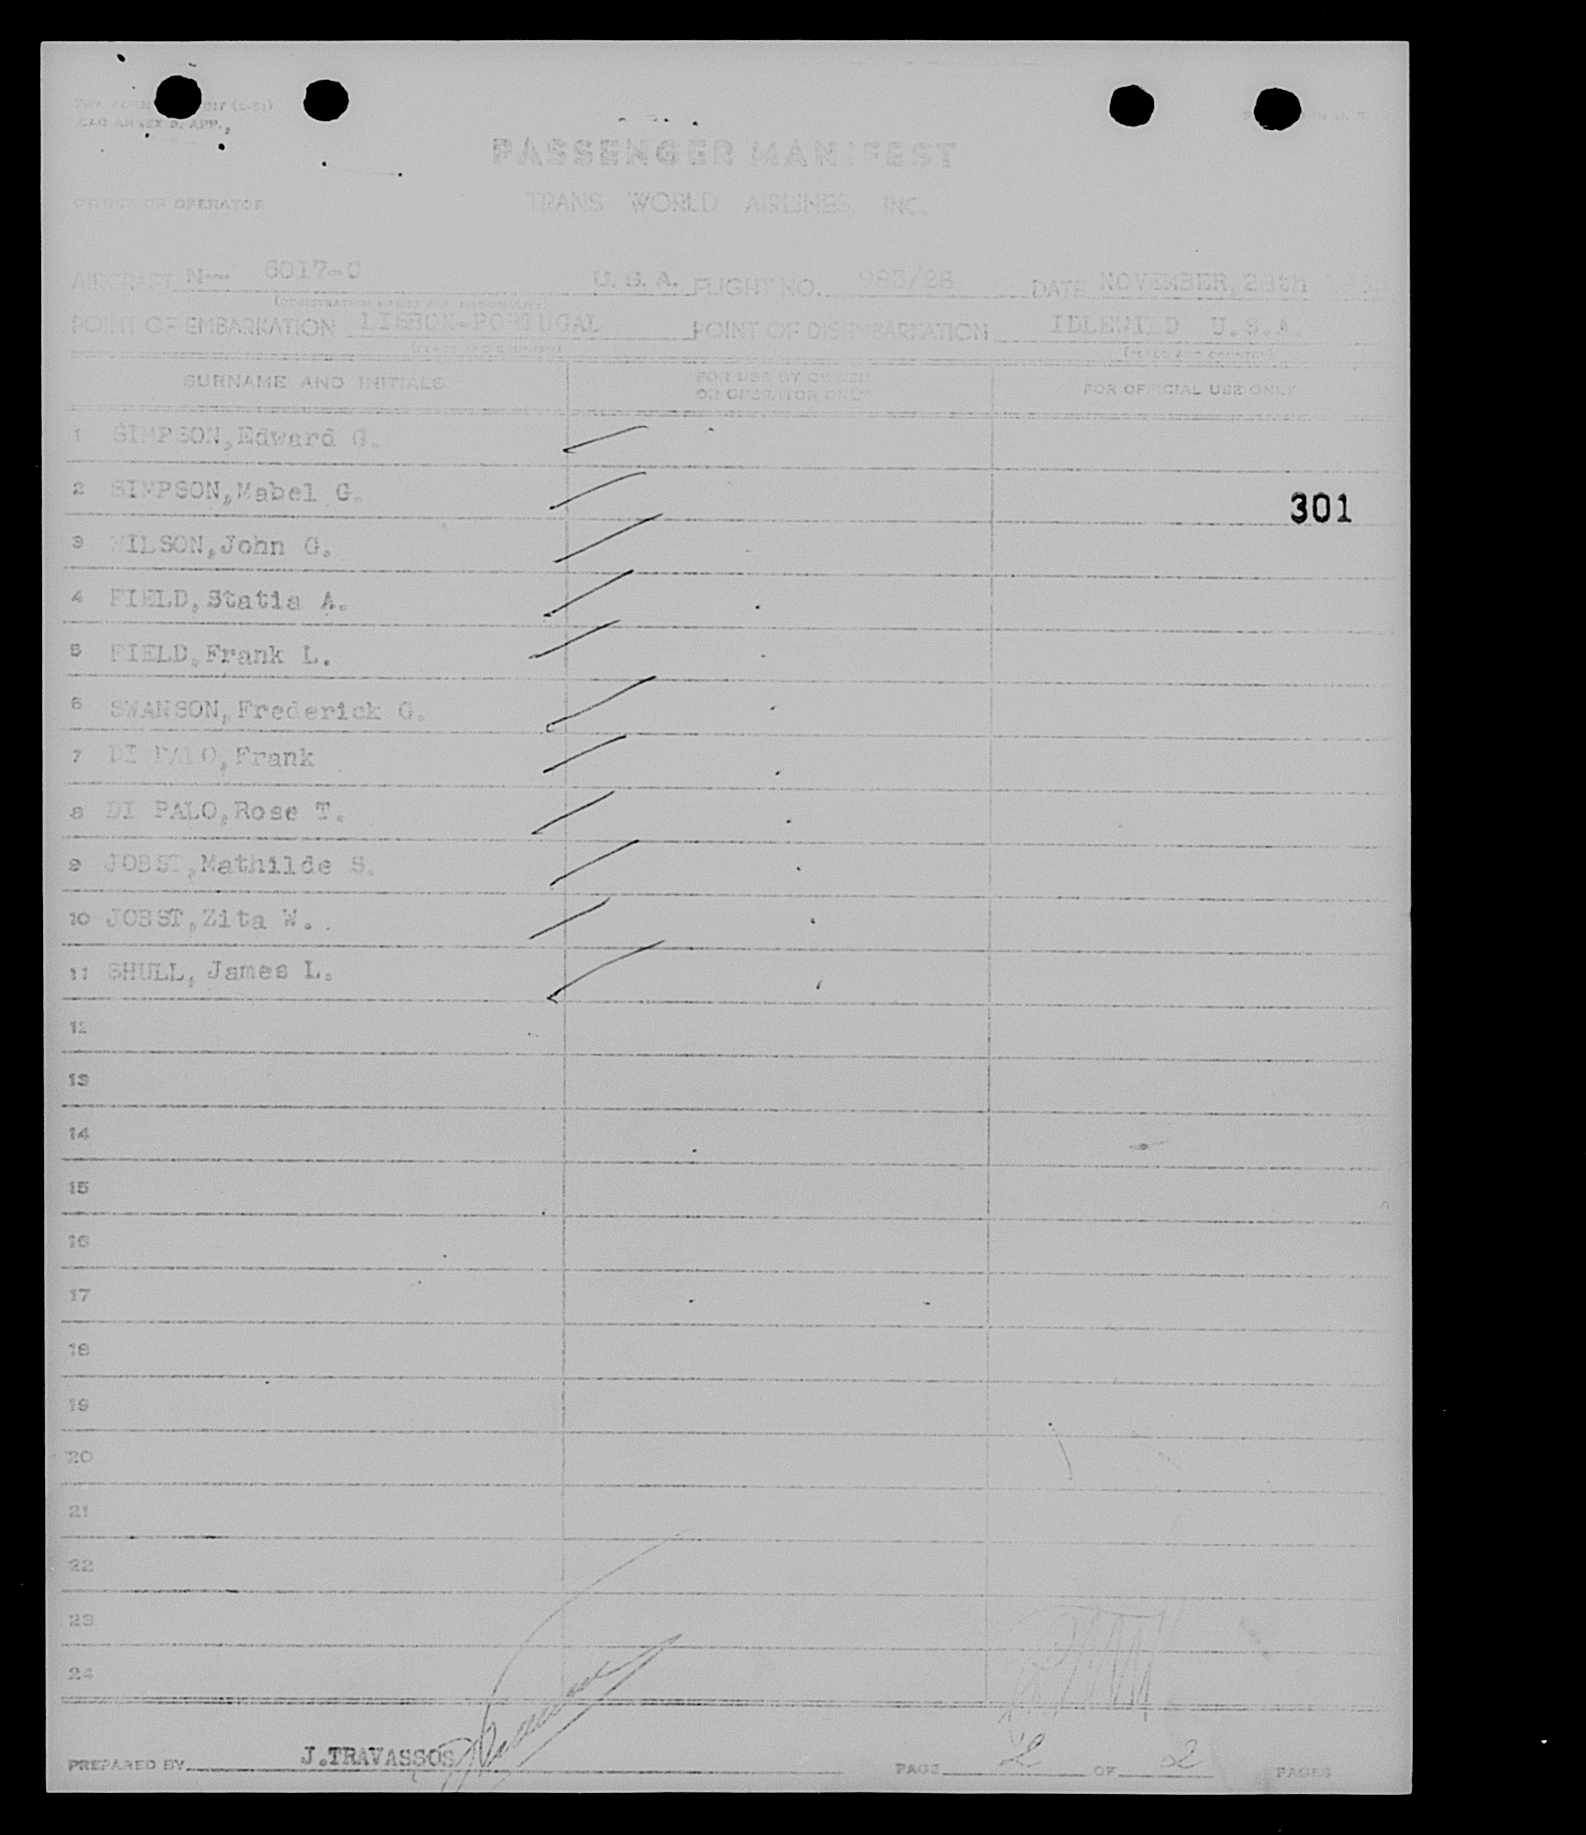 PASSENGER MANIFEST
OWNER OR OPERATOR TRANS WORLD AIRLINES, INC.
AIRCRAFT N— 6017-C U. S. A. FLIGHT NO. 983/28 DATE NOVEMBER, 28th
(REGISTRATION MARKS AND NATIONALITY)
POINT OF EMBARKATION LISBON-PORTUGAL POINT OF DISEMBARKATION IDLEWILD U.S.A.
(PLACE AND COUNTRY) (PLACE AND COUNTRY)
SURNAME AND INITIALS FOR USE BY OWNER OR OPERATOR ONLY FOR OFFICIAL USE ONLY
1 SIMPSON,Edward G.
2 SIMPSON,Mabel G.
301
3 WILSON,John G.
4 FIELD,Statia A.
5 FIELD,Frank L.
6 SWANSON,Frederick G.
7 DI PALO,Frank
8 DI PALO,Rose T.
9 JOBST,Mathilde S.
10 JOBST,Zita W.
11 SHULL, James L.
12
13
14
15
16
17
18
19
20
21
22
23
24
PREPARED BY J.TRAVASSOS PAGE 2 OF 2 PAGES